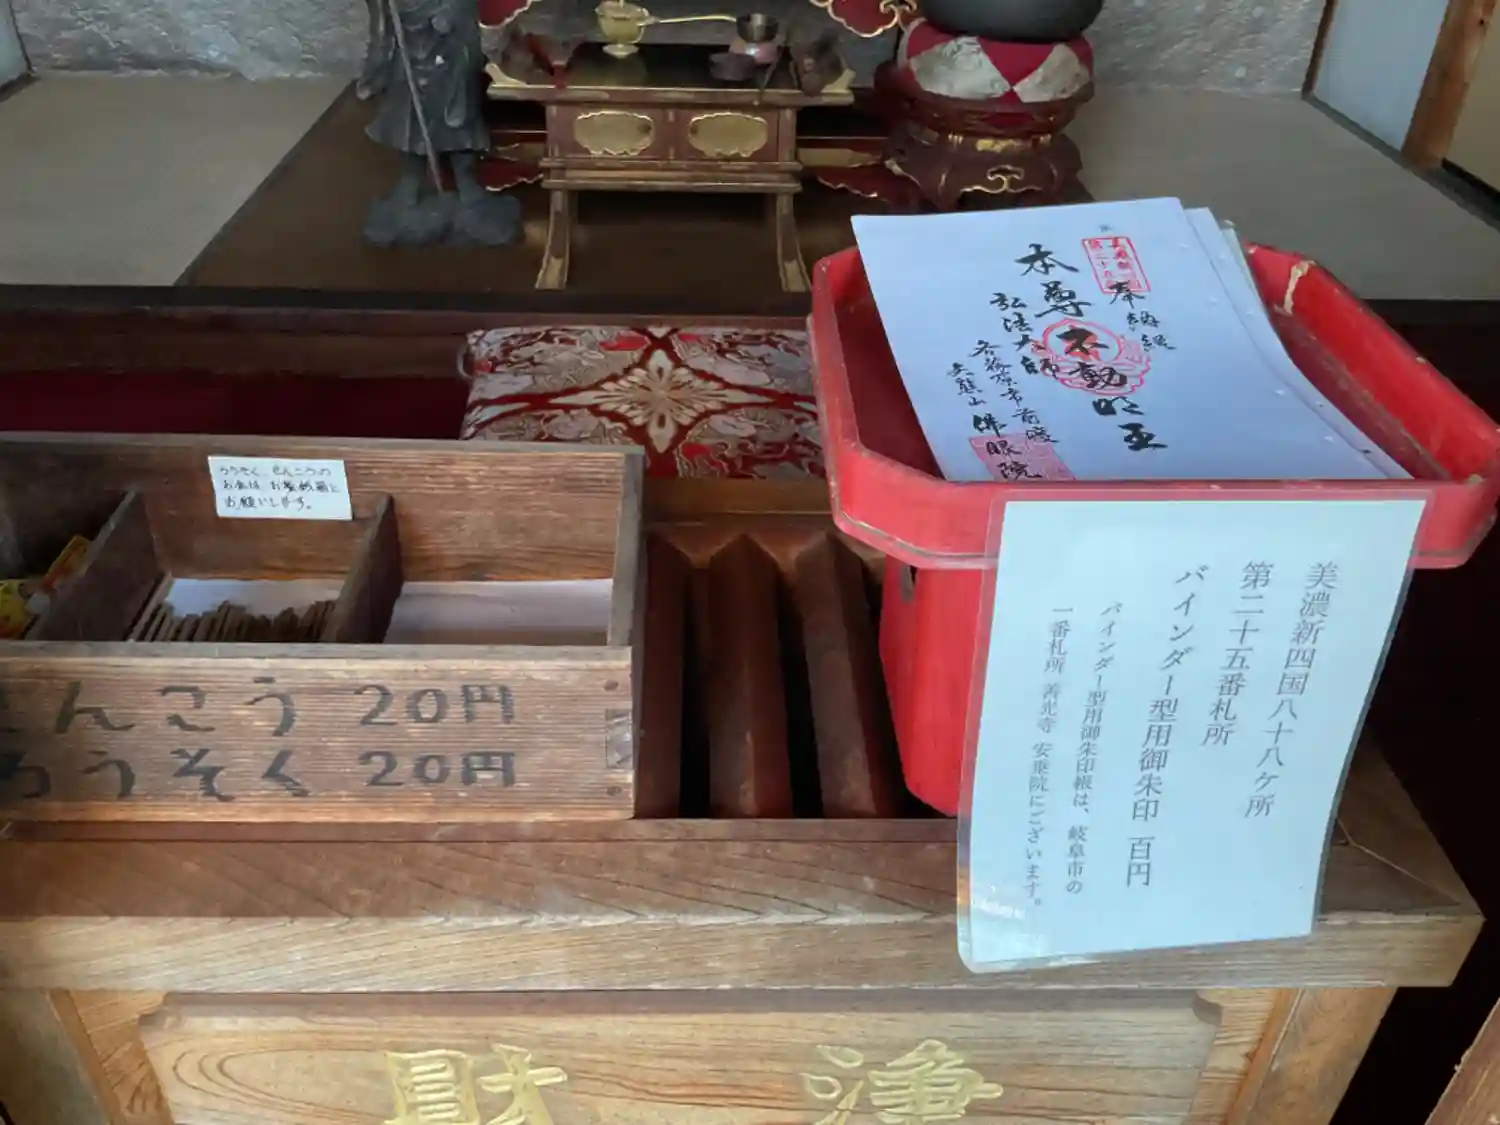 奉納経
本尊不動明王
弘法大師
各務原市前渡
仏眼院
ろうそく、せんこうの
お金は、お賽銭箱に
お願いします。
せんこう 20円
ろうそく 20円
美濃新四国八十八ケ所
第二十五番札所
バインダー型用御朱印 百円
バインダー型用御朱印帳は、岐阜市の
一番札所 善光寺 安乗院にございます。
浄財